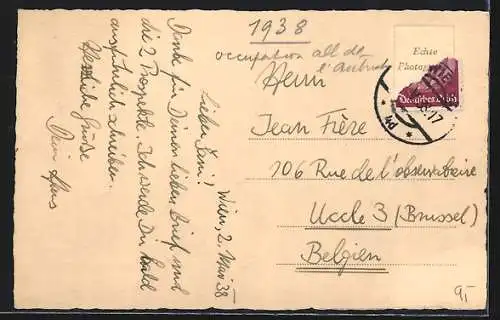 1938
occupation all de
l'Autriche
Echte
Deutsches Reich
Wien, 2. Mai 38
Lieber Jani!
Danke für Deinen lieben Brief und
die 2 Prospekte. Ich werde Dir bald
ausführlich schreiben.
Herzliche Grüße
Dein Hans
Herrn
Jean Fière
106 Rue de l'observatoire
Uccle 3 (Brussel)
Belgien
9,-